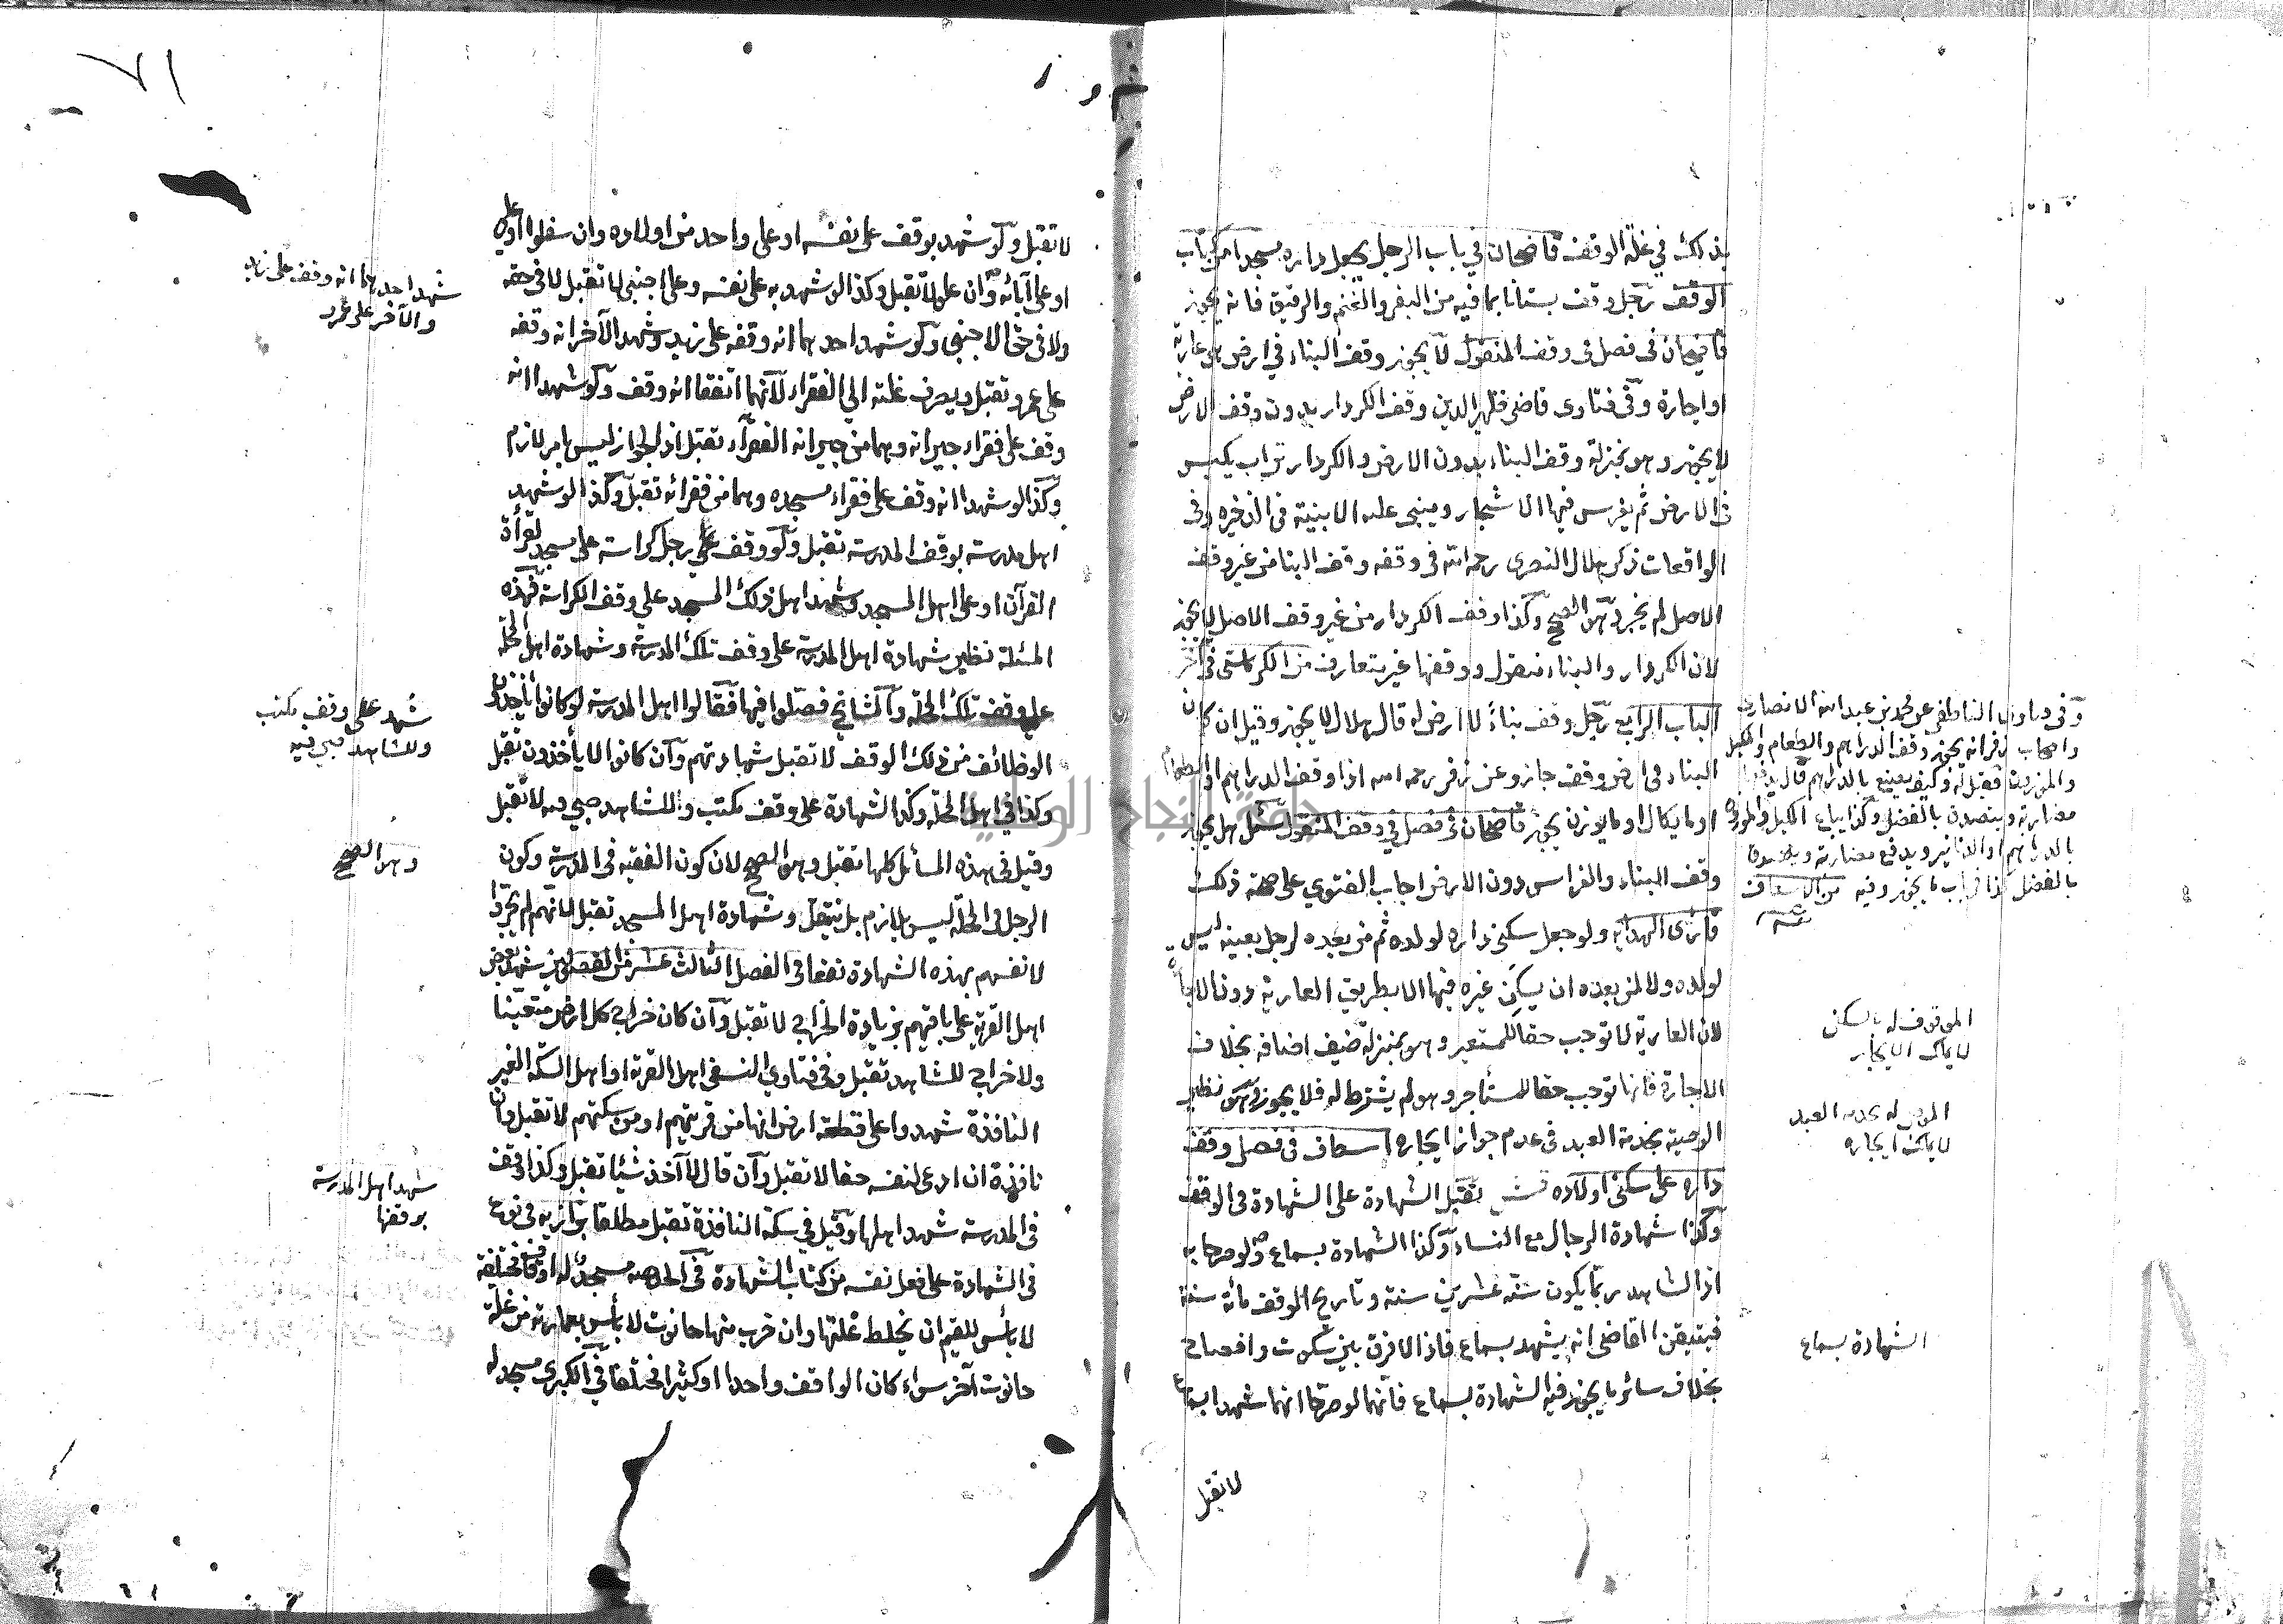 بذلك في غلة الوقف قاضيخان في باب الرجل يجعل داره مسجدا من كتاب
الوقف رجل وقف بستانا بما فيه من البقر والغنم والرقيق فانه يجوز
قاضيخان في فصل في وقف المنقول لا يجوز وقف البناء في ارض هي عارية
او اجارة وفي فتاوى قاضي ظهير الدين وقف الكردار بدون وقف الارض
لا يجوز وهو بمنزلة وقف البناء بدون الارض والكردار تراب يكبس
في الارض ثم يغرس فيها الاشجار ويبنى عليه الابنية في الذخيره وفي
الواقعات ذكر هلال البصرى رحمه الله في وقفه وقف البنا من غير وقف
الاصل لم يجز وهو الصحيح وكذا وقف الكردار من غير وقف الاصل لا يجوز
لان الكردار والبناء منقول ووقفها غير متعارف من الكركاستى في آخر
الباب الرابع رجل وقف بناءً لا ارض له قال هلال لا يجوز وقيل ان كان
البناء في ارض وقف جاز وعن زفر رحمه الله اذا وقف الدراهم او الطعام
او ما يكال او ما يوزن يجوز قاضيخان في فصل في وقف المنقول سئل هل يجوز
وقف البناء والغراس دون الارض اجاب الفتوي على صحة ذلك
قارئ الهدايه ولو جعل سكنى داره لولده ثم من بعده لرجل بعينه ليس
لولده ولا لمن بعده ان يسكن غيره فيها الا بطريق العارية دون الاجارة
لان العارية لا توجب حقا للمستعير وهو بمنزلة ضيف اضافه بخلاف
الاجارة فانها توجب حقا للمستأجر وهو لم يشترط له فلا يجوز وهو نظير
الوصية بخدمة العبد في عدم جواز ايجاره اسعاف في فصل وقف
داره على سكنى اولاده تقبل الشهادة على الشهادة في الوقف
وكذا شهادة الرجال مع النساء وكذا الشهادة بسماع ولو صرحا به
اذ الشاهد ربما يكون سنه عشرين سنة وتاريخ الوقف مائة سنة
فيتيقن القاضي انه يشهد بسماع فاذا لا فرق بين سكوت وافصاح
بخلاف سائر ما يجوز فيه الشهادة بسماع فانهما لو صرحا انهما شهدا بسماع
لا تقبل
وفي فتاوى الناطفي عن محمد بن عبد الله الانصارى
واصحاب زفر انه يجوز وقف الدراهم والطعام والمكيل
والموزون فقيل له وكيف يصنع بالدراهم قال يدفعها
مضاربة ويتصدق بالفضل وكذا يباع المكيل والموزون
بالدراهم او الدنانير ويدفع مضاربة ويتصدق
بالفضل من الاسعاف
الموقوف له بالسكنى
لا يملك الايجار
الموصى له بخدمة العبد
لا يملك ايجاره
الشهادة بسماع
٧١
لا تقبل ولو شهد بوقف على نفسه او على واحد من اولاده وان سفلوا
او على آبائه وان علوا لا تقبل وكذا لو شهد به على نفسه وعلى اجنبي لا تقبل لا في حقه
ولا في حق الاجنبي ولو شهد احدهما انه وقفه على زيد وشهد الآخر انه وقفه
على عمرو تقبل ويصرف غلته الى الفقراء لانهما اتفقا انه وقف ولو شهدا انه
وقف على فقراء جيرانه وهما من جيرانه الفقراء تقبل اذ الجوار ليس بامر لازم
وكذا لو شهدا انه وقف على فقراء مسجده وهما من فقرائه تقبل وكذا لو شهد
اهل مدرسة بوقف المدرسة تقبل ولو وقف رجل كراسة على مسجد لقراءة
القرآن او على اهل المسجد وشهد اهل ذلك المسجد على وقف الكراسة فهذه
المسئلة نظير شهادة اهل المدرسة على وقف تلك المدرسة وشهادة اهل المحلة
على وقف تلك المحلة والمشايخ فصلوا فيها فقالوا اهل المدرسة لو كانوا يأخذون
الوظائف من ذلك الوقف لا تقبل شهادتهم وان كانوا لا يأخذون تقبل
وكذا في اهل المحلة وكذا الشهادة على وقف مكتب وللشاهد صبي فيه لا تقبل
وقيل في هذه المسائل كلها تقبل وهو الصحيح لان كون الفقيه في المدرسة وكون
الرجل في المحلة ليس بلازم بل ينتقل وشهادة اهل المسجد تقبل لانهم لم يجروا
لانفسهم بهذه الشهادة نفعا في الفصل الثالث عشر من الفصولين شهد بعض
اهل القرية على باقيهم بزيادة الخراج لا تقبل وان كان خراج كل ارض متعينا
ولا خراج للشاهد تقبل وفي فتاوي النسفي اهل القرية او اهل السكة الغير
النافذة شهدوا على قطعة ارض انها من قريتهم او من سكتهم لا تقبل وان
نافذة ان ادعى لنفسه حقا لا تقبل وان قال لا آخذ شيئا تقبل وكذا وقف
في المدرسة شهد اهلها وقيل في سكة النافذة تقبل مطلقا بزازيه في نوع
في الشهادة على فعل نفسه من كتاب الشهادة مسجد له اوقاف مختلفة
لا بأس للقيم ان يخلط غلتها وان خرب منها حانوت لا بأس بعمارته من غلة
حانوت آخر سواء كان الواقف واحدا او كثيرا مختلفا في الكبرى مسجد له
شهد احدهما انه وقف على زيد
والآخر على عمرو
شهد على وقف مكتب
وللشاهد صبي فيه
وهو الصحيح
شهد اهل المدرسة
بوقفها
جامعة النجاح الوطنية